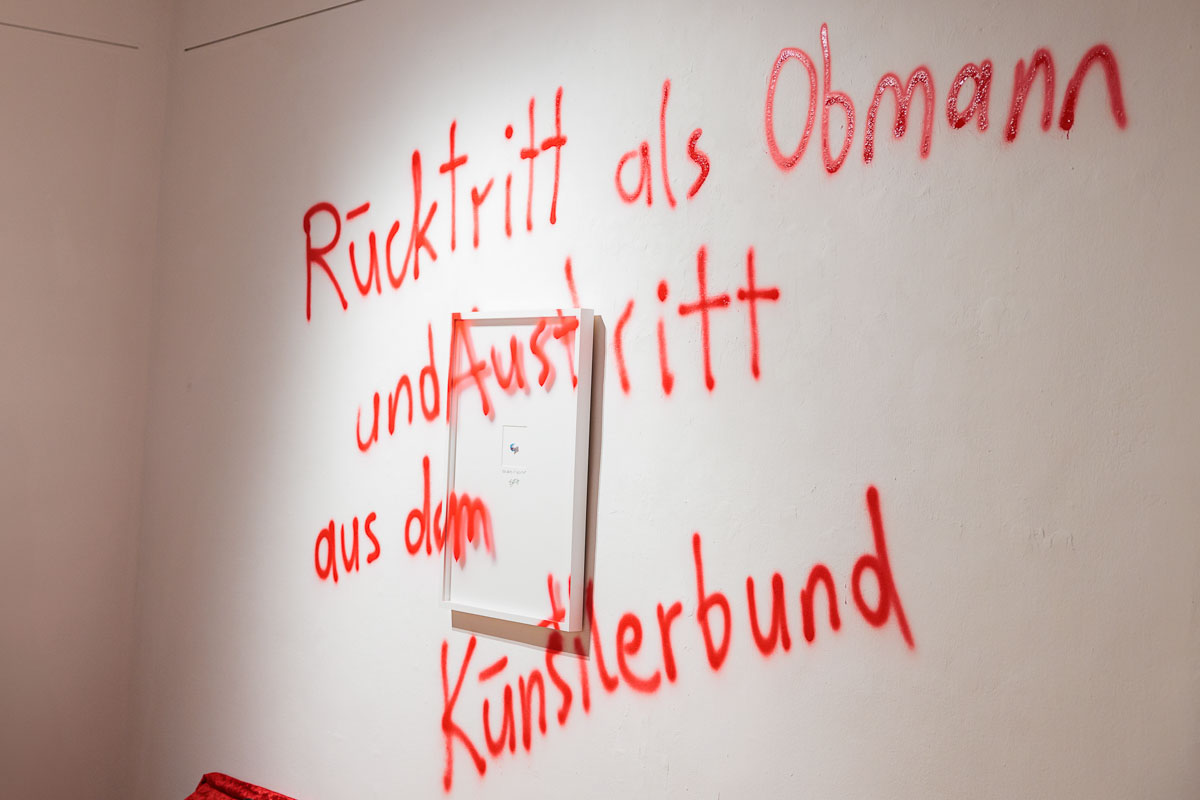 Rücktritt als Obmann
und Austritt
aus dem
Künstlerbund